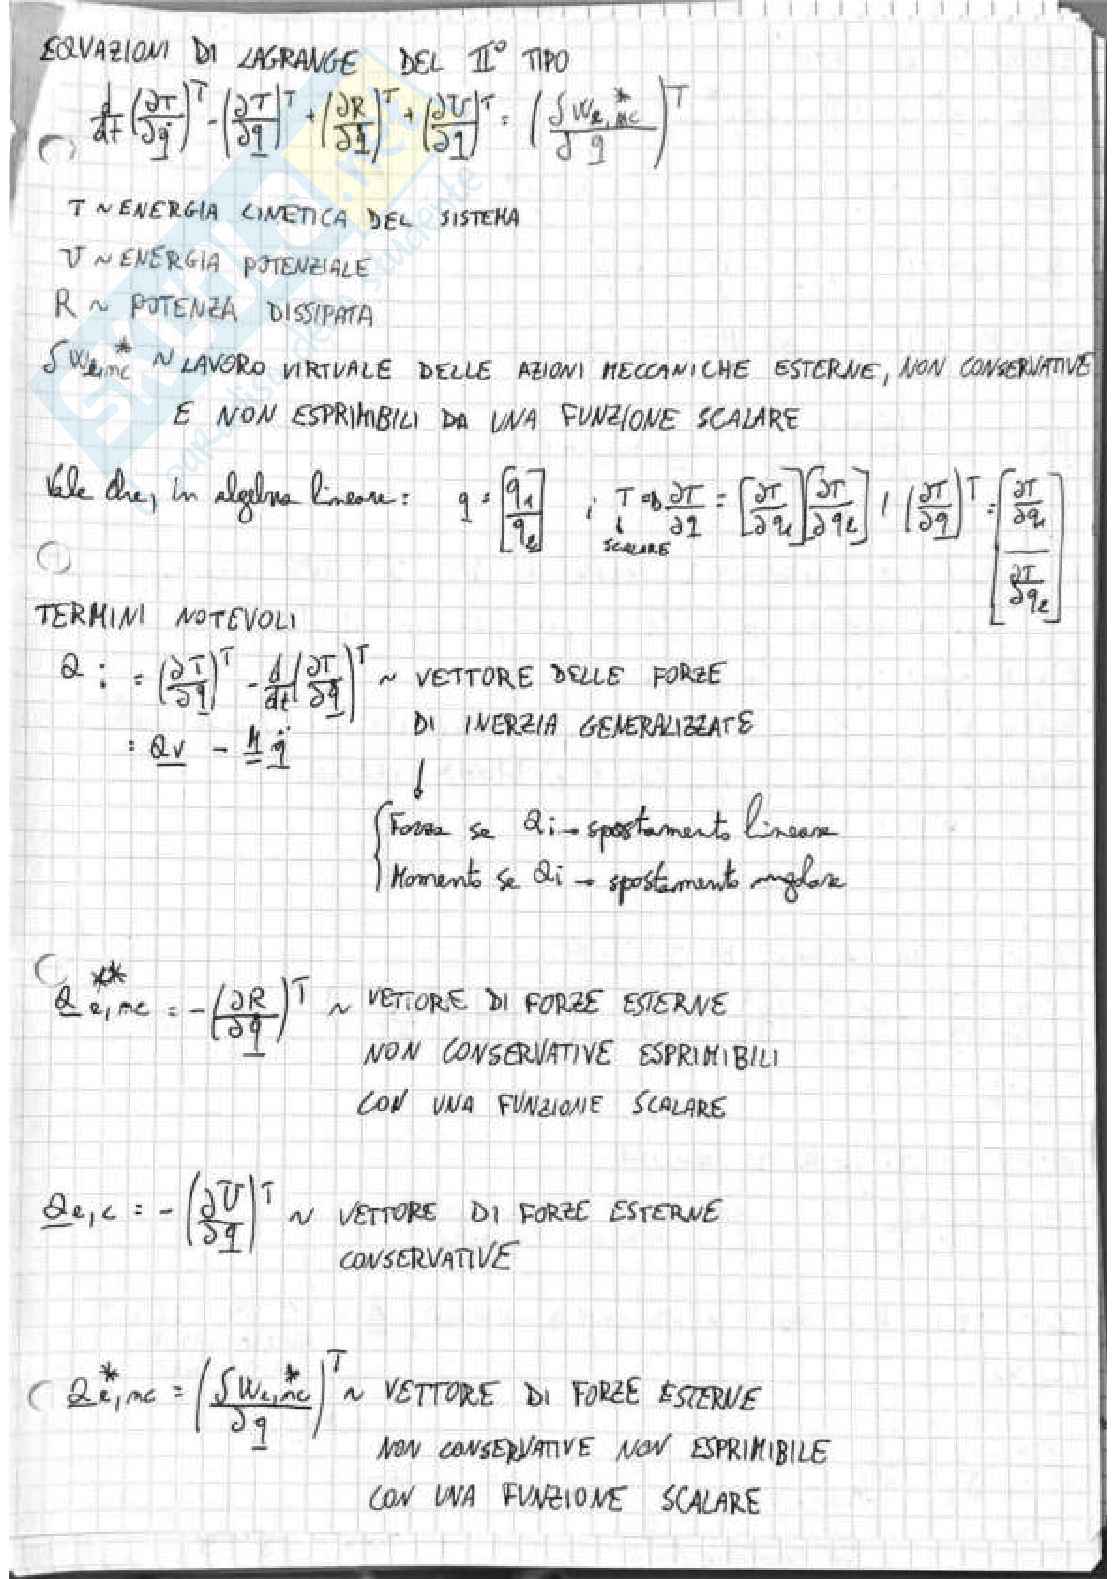 EQUAZIONI DI LAGRANGE DEL II° TIPO
d/dt (∂T/∂q̇)^T - (∂T/∂q)^T + (∂R/∂q̇)^T + (∂U/∂q)^T = (δW*e,nc/δq)^T
T ~ ENERGIA CINETICA DEL SISTEMA
U ~ ENERGIA POTENZIALE
R ~ POTENZA DISSIPATA
δW*e,nc ~ LAVORO VIRTUALE DELLE AZIONI MECCANICHE ESTERNE, NON CONSERVATIVE
E NON ESPRIMIBILI DA UNA FUNZIONE SCALARE
Vale che, in algebra lineare: q = [q1/q2] ; T → ∂T/∂q = [∂T/∂q1][∂T/∂q2] / (∂T/∂q)^T = [∂T/∂q1 / ∂T/∂q2]
SCALARE
TERMINI NOTEVOLI
Q i = (∂T/∂q)^T - d/dt (∂T/∂q̇)^T ~ VETTORE DELLE FORZE
DI INERZIA GENERALIZZATE
= Qv - M q̈
↓
Forza se Qi → spostamento lineare
Momento se Qi → spostamento angolare
Q**e,nc = -(∂R/∂q̇)^T ~ VETTORE DI FORZE ESTERNE
NON CONSERVATIVE ESPRIMIBILI
CON UNA FUNZIONE SCALARE
Qe,c = -(∂U/∂q)^T ~ VETTORE DI FORZE ESTERNE
CONSERVATIVE
Q*e,nc = (δW*e,nc/∂q)^T ~ VETTORE DI FORZE ESTERNE
NON CONSERVATIVE NON ESPRIMIBILE
CON UNA FUNZIONE SCALARE